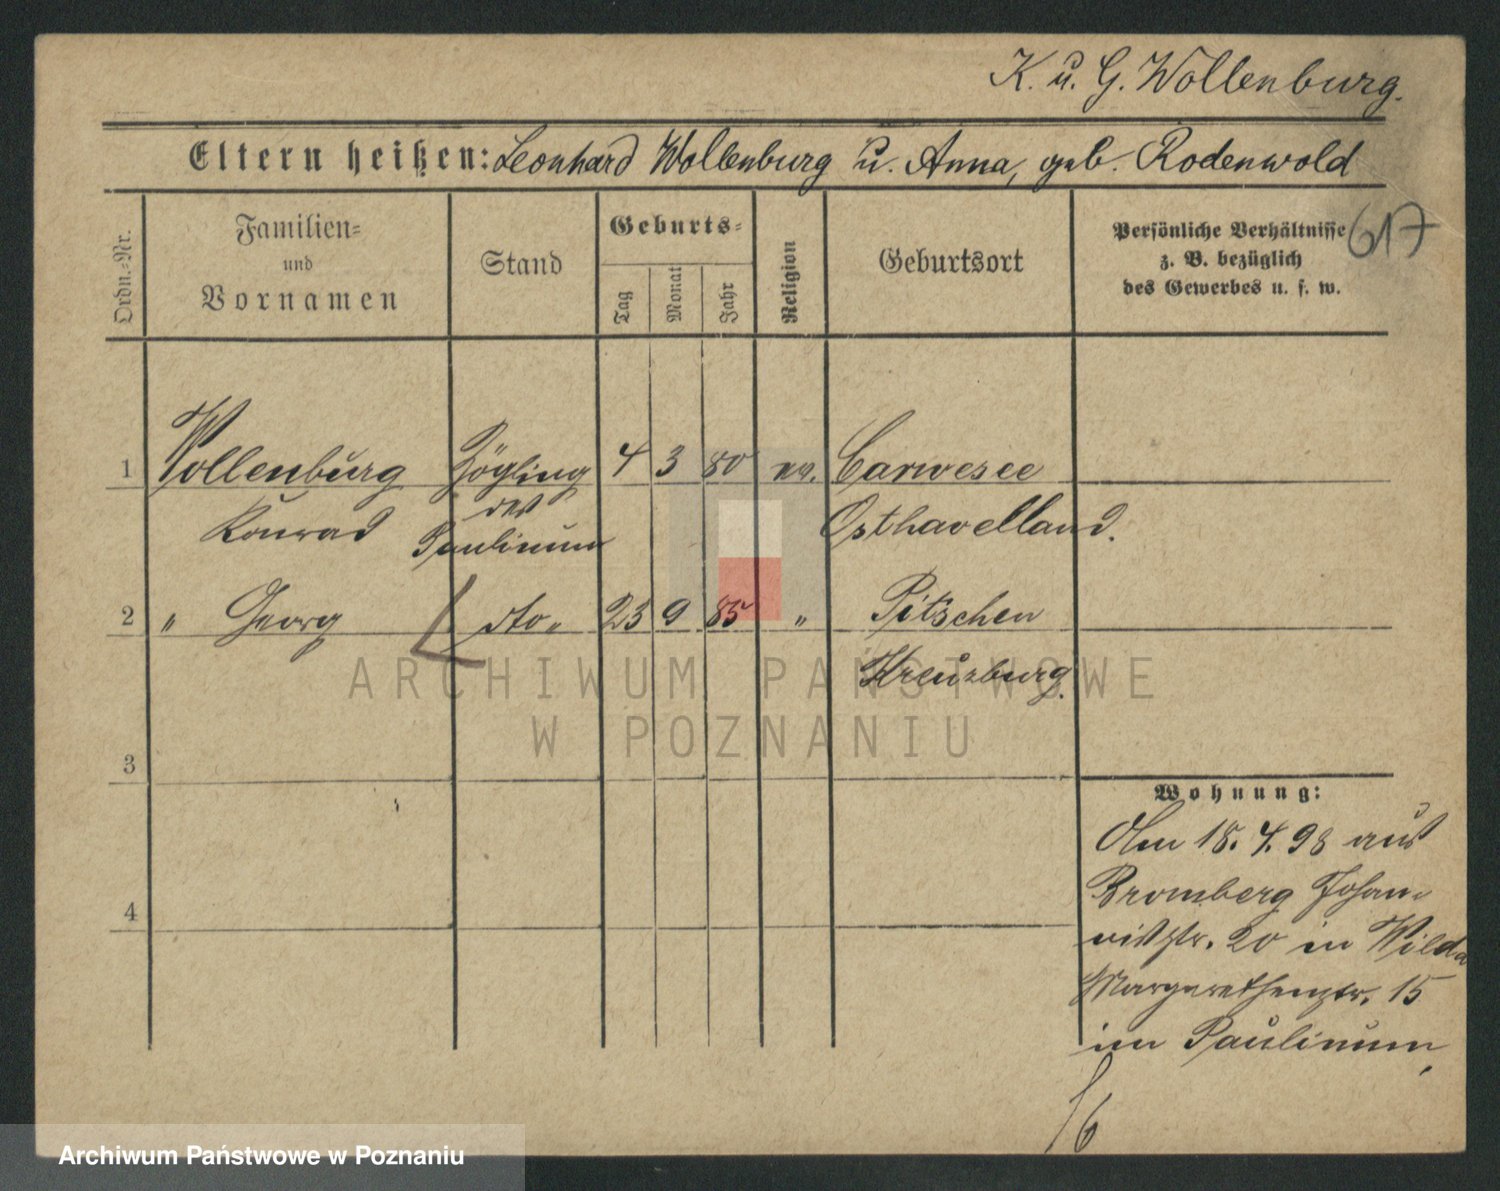 K. u. G. Wollenburg.
Eltern heißen: Leonhard Wollenburg u. Anna, geb. Rodenwold
Ordn.-Nr.
Familien-
und
Vornamen
Stand
Geburts-
Tag
Monat
Jahr
Religion
Geburtsort
Persönliche Verhältnisse
z. B. bezüglich
des Gewerbes u. s. w.
617
1 Wollenburg Zögling 4 3 80 ev. Carwesee
des
Konrad Paulinum Osthavelland.
2 " Georg dto. 23 9 85 " Pitschen
Kreuzburg.
3
4
Wohnung:
Am 18. 4. 98 aus
Bromberg Johan-
nisstr. 20 in Wilda
Margarethenstr. 15
im Paulinum,
ARCHIWUM PAŃSTWOWE
W POZNANIU
Archiwum Państwowe w Poznaniu